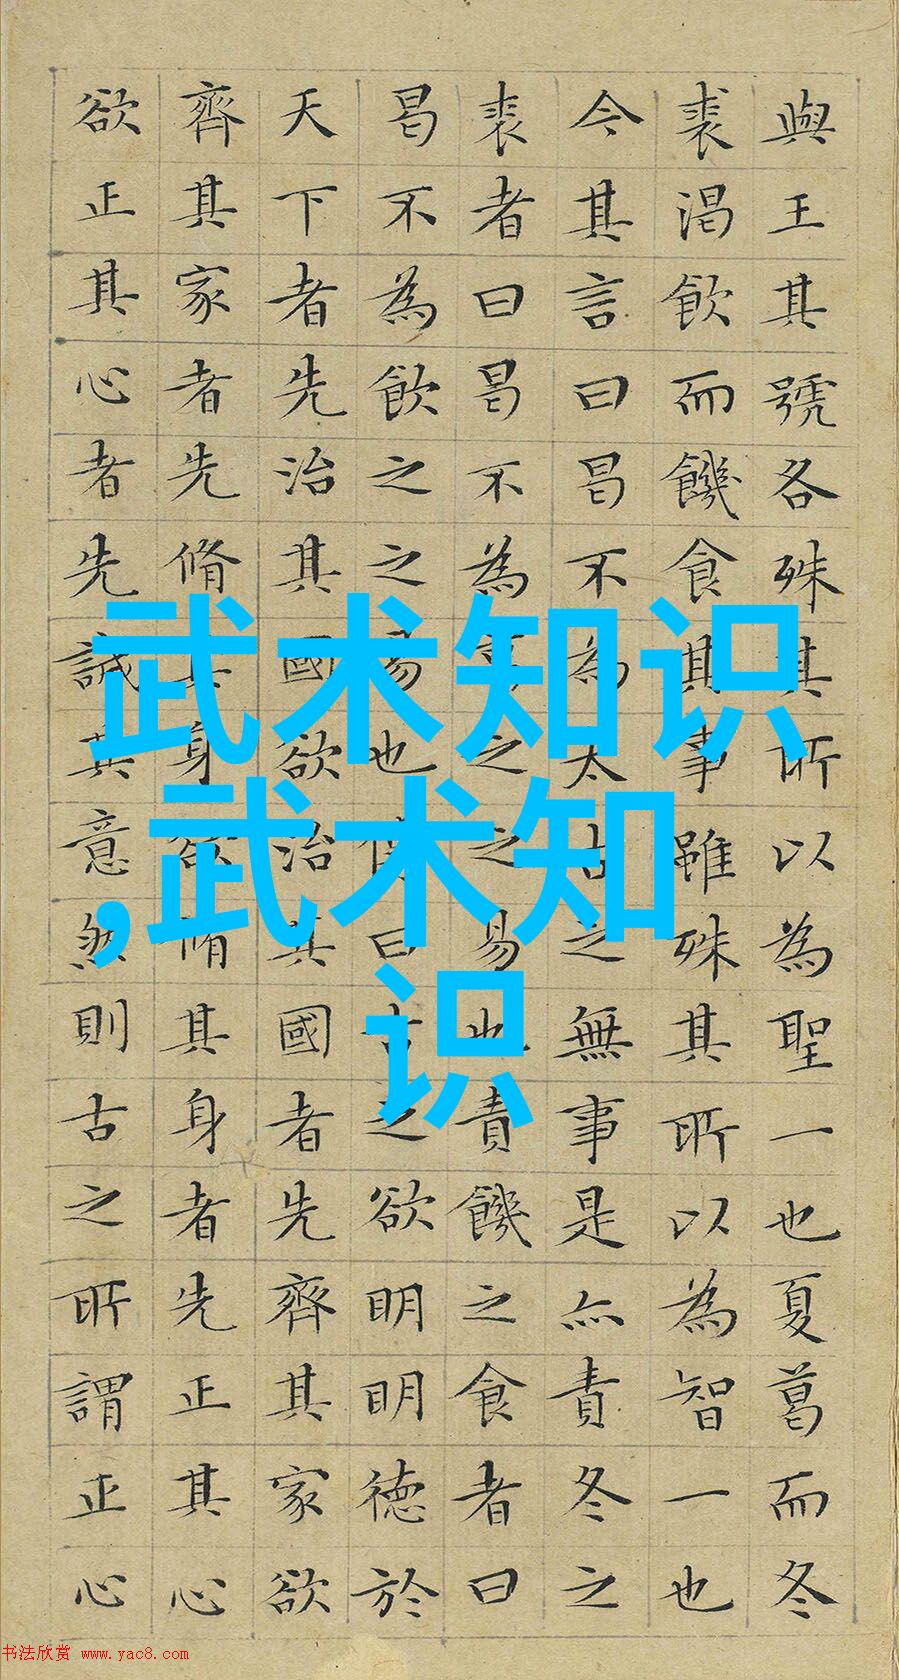 與王其號各殊其所以為聖一也夏葛而冬
裘渴飲而饑食其事雖殊其所以為智一也
今其言曰曷不為太古之無事是亦責冬之
裘者曰曷不為葛之之易也責饑之食者曰
曷不為飲之之易也傳曰古之欲明明德於
天下者先治其國欲治其國者先齊其家欲
齊其家者先脩其身欲脩其身者先正其心
欲正其心者先誠其意然則古之所謂正心
武术知识
,武术知
识
书法欣赏 www.yac8.com